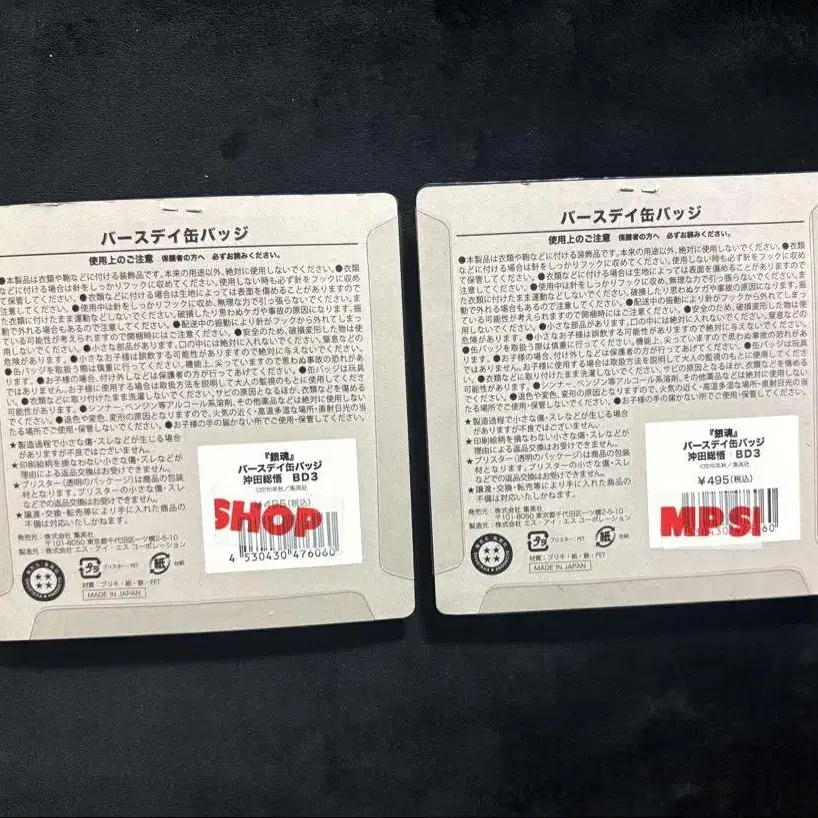 バースデイ缶バッジ
使用上のご注意 保護者の方へ 必ずお読みください。
●本製品は衣類や鞄などに付ける装飾品です。本来の用途以外、絶対に使用しないでください。●衣類
などに付ける場合は針をしっかりフックに収めてください。使用しない時も必ず針をフックに収め
て保管してください。●衣類などに付ける場合は生地によっては表面を傷めることがありますので
注意してください。●使用中は針をしっかりフックに収め、無理な力で引っ張らないでください。ま
た衣類に付けたまま運動などしないでください。破損したり思わぬケガや事故の原因になります。振
動で外れる場合もあるので注意してください。●配送中の振動により針がフックから外れてしまっ
ている可能性が考えられますので開梱時にはご注意ください。●安全のため、破損変形した物は使
用しないでください。●小さな部品があります。口の中には絶対に入れないでください。窒息などの
危険があります。●小さなお子様は誤飲する可能性がありますので絶対に与えないでください。
●缶バッジを取扱う際は慎重に行ってください。機能上、尖っていますので思わぬ事故の恐れがあ
ります。●お子様の場合、付け外しなどは保護者の方が行ってあげてください。●缶バッジは玩具
ではありません。お子様が使用する場合は取扱方法を説明して大人の監視のもとに使用してくださ
い。●衣類などに取り付けたまま洗濯しないでください。サビの原因となるほか、衣類などを傷める
可能性があります。●シンナー、ベンジン等アルコール系溶剤、その他薬品などは絶対に使用しない
でください。●退色や変色、変形の原因となりますので、火気の近く・高温多湿な場所・直射日光の当
たる場所でご使用・保管しないでください。●お子様の手の届かない所でご使用・保管してください。
★製造過程で小さな傷・スレなどが生じる場合
がありますが不良ではございません。
★印刷絵柄を損なわない小さな傷・スレなどが
理由による返品交換はお受けできません。
★ブリスター(透明のパッケージ)は商品の包装
材となります。ブリスターの小さな傷・スレ
などでの返品交換はお受けできません。
★譲渡・交換・転売等により手に入れた商品の
不備は対応いたしかねます。
『銀魂』
バースデイ缶バッジ
沖田総悟 BD3
©空知英秋/集英社
¥495(税込)
SHOP
4 530430 476060
発売元:株式会社 集英社
〒101-8050 東京都千代田区一ツ橋2-5-10
販売元:株式会社 エス・アイ・エス コーポレーション
プラ
ブリスター:PET
紙
台紙
材質:ブリキ・紙・鉄・PET
MADE IN JAPAN
バースデイ缶バッジ
使用上のご注意 保護者の方へ 必ずお読みください。
●本製品は衣類や鞄などに付ける装飾品です。本来の用途以外、絶対に使用しないでください。●衣類
などに付ける場合は針をしっかりフックに収めてください。使用しない時も必ず針をフックに収め
て保管してください。●衣類などに付ける場合は生地によっては表面を傷めることがありますので
注意してください。●使用中は針をしっかりフックに収め、無理な力で引っ張らないでください。ま
た衣類に付けたまま運動などしないでください。破損したり思わぬケガや事故の原因になります。振
動で外れる場合もあるので注意してください。●配送中の振動により針がフックから外れてしまっ
ている可能性が考えられますので開梱時にはご注意ください。●安全のため、破損変形した物は使
用しないでください。●小さな部品があります。口の中には絶対に入れないでください。窒息などの
危険があります。●小さなお子様は誤飲する可能性がありますので絶対に与えないでください。
●缶バッジを取扱う際は慎重に行ってください。機能上、尖っていますので思わぬ事故の恐れがあ
ります。●お子様の場合、付け外しなどは保護者の方が行ってあげてください。●缶バッジは玩具
ではありません。お子様が使用する場合は取扱方法を説明して大人の監視のもとに使用してくださ
い。●衣類などに取り付けたまま洗濯しないでください。サビの原因となるほか、衣類などを傷める
可能性があります。●シンナー、ベンジン等アルコール系溶剤、その他薬品などは絶対に使用しない
でください。●退色や変色、変形の原因となりますので、火気の近く・高温多湿な場所・直射日光の当
たる場所でご使用・保管しないでください。●お子様の手の届かない所でご使用・保管してください。
★製造過程で小さな傷・スレなどが生じる場合
がありますが不良ではございません。
★印刷絵柄を損なわない小さな傷・スレなどが
理由による返品交換はお受けできません。
★ブリスター(透明のパッケージ)は商品の包装
材となります。ブリスターの小さな傷・スレ
などでの返品交換はお受けできません。
★譲渡・交換・転売等により手に入れた商品の
不備は対応いたしかねます。
『銀魂』
バースデイ缶バッジ
沖田総悟 BD3
©空知英秋/集英社
¥495(税込)
MPS
発売元:株式会社 集英社
〒101-8050 東京都千代田区一ツ橋2-5-10
販売元:株式会社 エス・アイ・エス コーポレーション
プラ
ブリスター:PET
紙
台紙
材質:ブリキ・紙・鉄・PET
MADE IN JAPAN